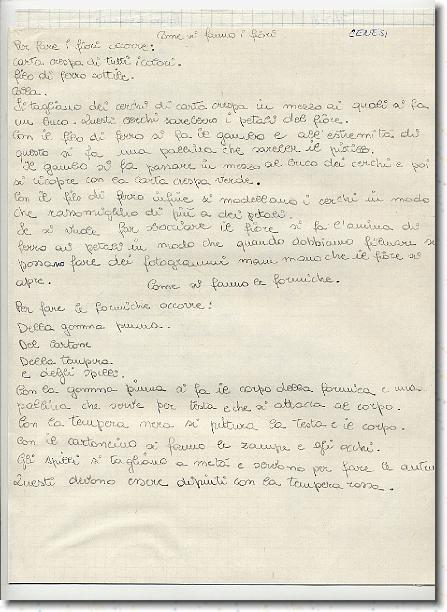 Come si fanno i fiori
GENESI
Per fare i fiori occorre:
carta crespa di tutti i colori.
filo di ferro sottile.
Colla.
Si tagliano dei cerchi di carta crespa in mezzo ai quali si fa
un buco. Questi cerchi sarebbero i petali del fiore.
Con il filo di ferro si fa il gambo e all'estremità di
questo si fa una pallina che sarebbe il
Il gambo si fa passare in mezzo al buco dei cerchi e poi
si ricopre con la carta crespa verde.
Con il filo di ferro infine si modellano i cerchi in modo
che rassomiglino di più a dei petali.
Se si vuole far sbocciare il fiore si fa l'anima di
ferro ai petali in modo che quando dobbiamo filmare si
possano fare dei fotogrammi man mano che il fiore si
apre.
Come si fanno le formiche.
Per fare le formiche occorre:
Della gomma piuma.
Del cartone
Della tempera
e degli spilli.
Con la gomma piuma si fa il corpo della formica e una
pallina che serve per testa e che si attacca al corpo.
Con la tempera nera si pittura la testa e il corpo.
Con il cartoncino si fanno le zampe e gli occhi.
Gli spilli si tagliano a metà e servono per fare le
Questi devono essere dipinti con la tempera rossa.